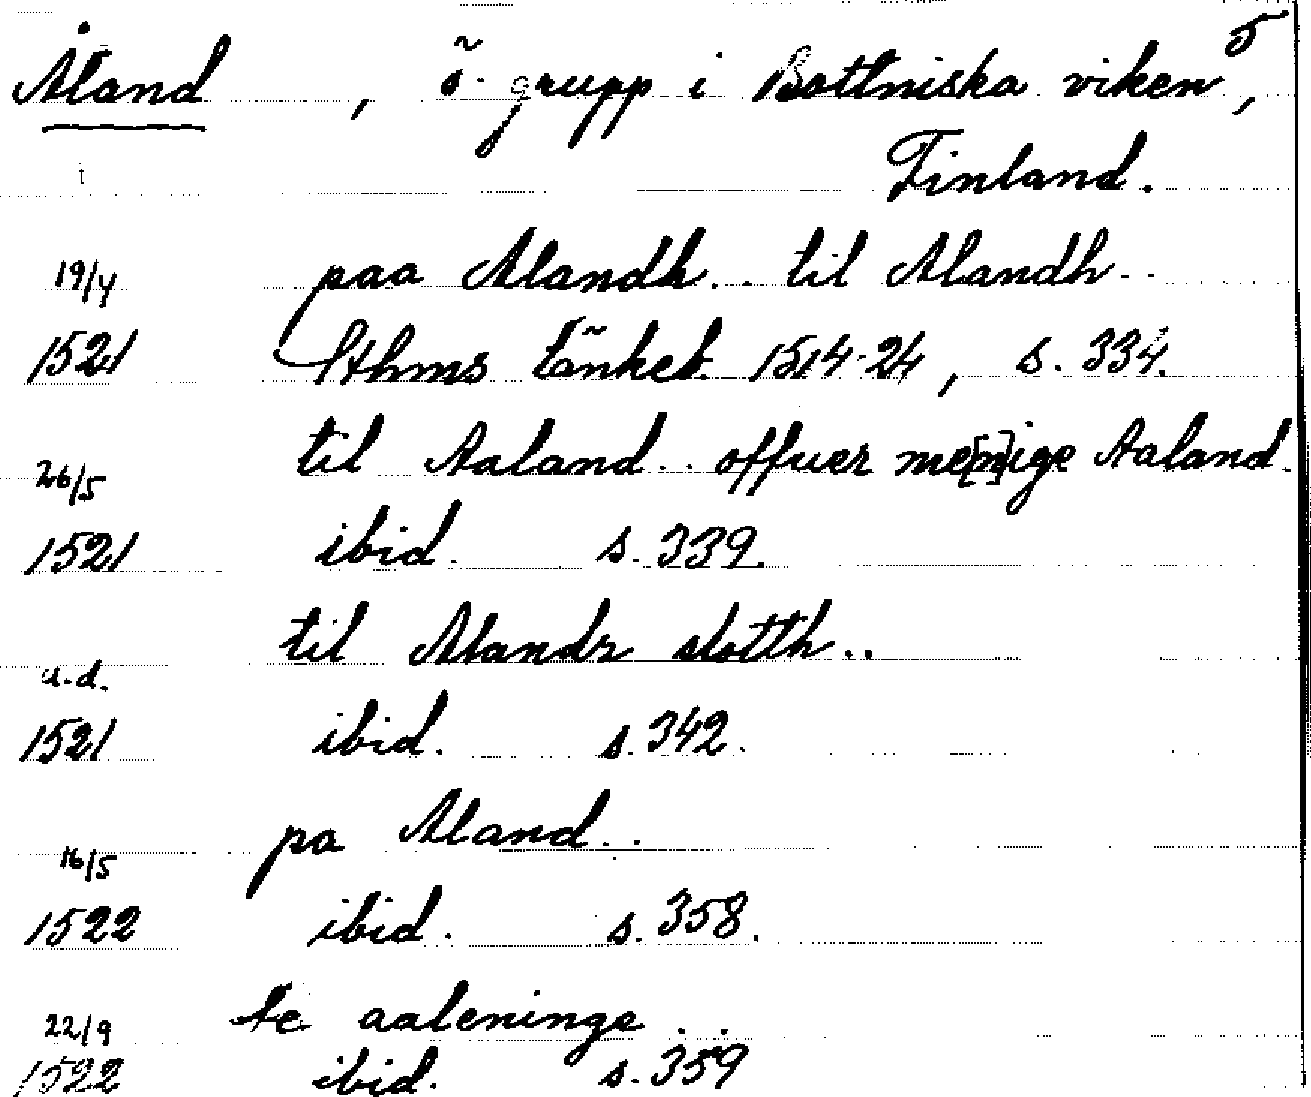 5
Åland, ö-grupp i Bottniska viken,
Finland.
19/4 paa Alandh .. til Alandh ..
1521 Sthms tänkeb. 1514-24, s. 334.
26/5 til Aaland .. offuer me[n]ige Aaland.
1521 ibid. s. 339.
til Alandz slotth ..
u.d.
1521 ibid. s. 342.
pa Aland ..
16/5
1522 ibid. s. 358.
22/9 te aaleninge ...
1522 ibid. s. 359